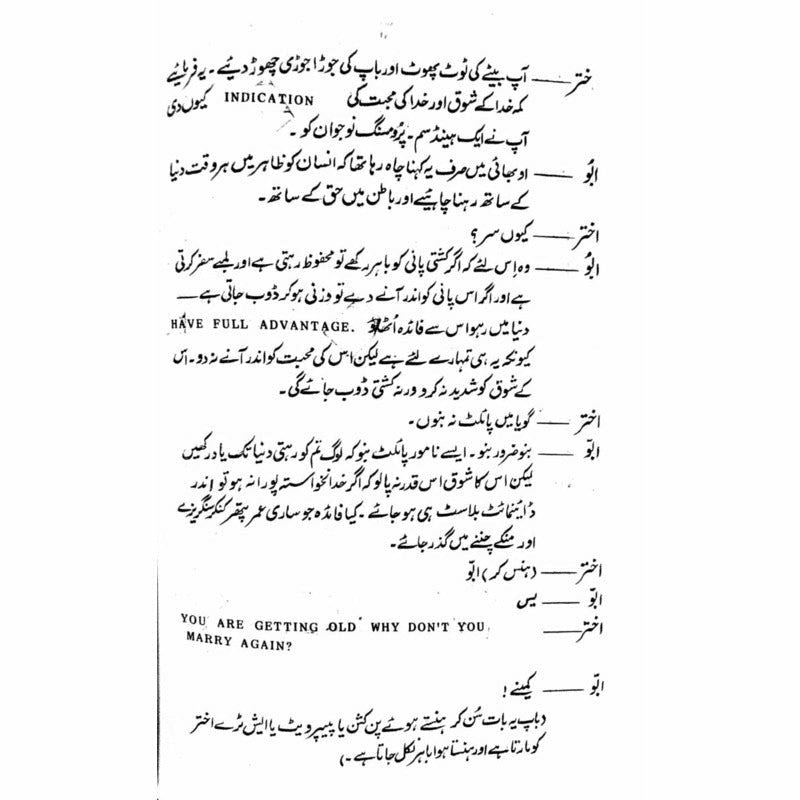 اختر ــــ آپ بیٹے کی ٹوٹ پھوٹ اور باپ کی جوڑا جوڑی چھوڑ دیئیے۔ یہ فرمائیے
کہ خدا کے شوق اور خدا کی محبت کی INDICATION کیوں دی
آپ نے ایک ہینڈسم۔ پرُومسنگ نوجوان کو۔
ابُو ــــ او بھائی میں صرف یہ کہنا چاہ رہا تھا کہ انسان کو ظاہر میں ہر وقت دنیا
کے ساتھ رہنا چاہئیے اور باطن میں حق کے ساتھ۔
اختر ــــ کیوں سر؟
ابُو ــــ وہ اِس لئے کہ اگر کشتی پانی کو باہر رکھے تو محفوظ رہتی ہے اور لمبے سفر کرتی
ہے اور اگر اس پانی کو اندر آنے دے تو وزنی ہو کر ڈوب جاتی ہے ــــ
دنیا میں رہو اس سے فائدہ اُٹھاؤ HAVE FULL ADVANTAGE.
کیونکہ یہ ہی تمہارے لئے ہے لیکن اس کی محبت کو اندر آنے نہ دو۔ اس
کے شوق کو شدید نہ کرو ورنہ کشتی ڈوب جائے گی۔
اختر ــــ گویا میں پائلٹ نہ بنوں۔
ابّو ــــ بنو ضرور بنو۔ ایسے نامور پائلٹ بنو کہ لوگ تم کو رہتی دنیا تک یاد رکھیں
لیکن اس کا شوق اس قدر نہ پالو کہ اگر خدانخواستہ پورا نہ ہو تو اندر
ڈائینمائٹ بلاسٹ ہی ہو جائے۔ کیا فائدہ جو ساری عمر پتھر کنکر سنگریزے
اور منکے چننے میں گذر جائے۔
اختر ــــ (ہنس کر) ابّو
ابّو ــــ یس
اختر ــــ YOU ARE GETTING OLD WHY DON'T YOU
MARRY AGAIN?
ابّو ــــ کمینے!
(باپ یہ بات سُن کر ہنستے ہوئے پن کشن یا پیپر ویٹ یا ایش ٹرے اختر
کو مارتا ہے اور ہنستا ہوا باہر نکل جاتا ہے۔)